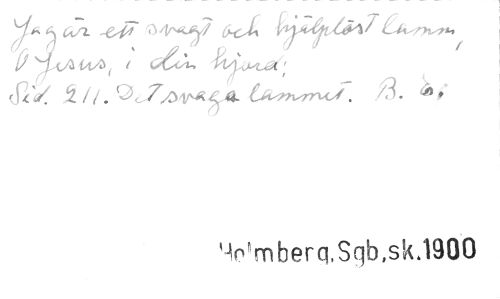 Jag är ett svagt och hjälplöst lamm,
O Jesus, i din hjord;
Sid. 211. Det svaga lammet. B. ö.
Holmberg, Sgb, sk. 1900